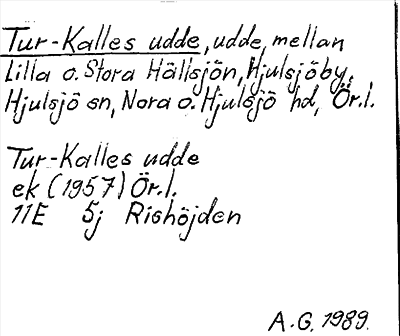 Tur-Kalles udde, udde, mellan
Lilla o. Stora Hällsjön, Hjulsjöby,
Hjulsjö sn, Nora o. Hjulsjö hd, Ör.l.
Tur-Kalles udde
ek (1957) Ör.l.
11E 5j Rishöjden
A.G. 1989.